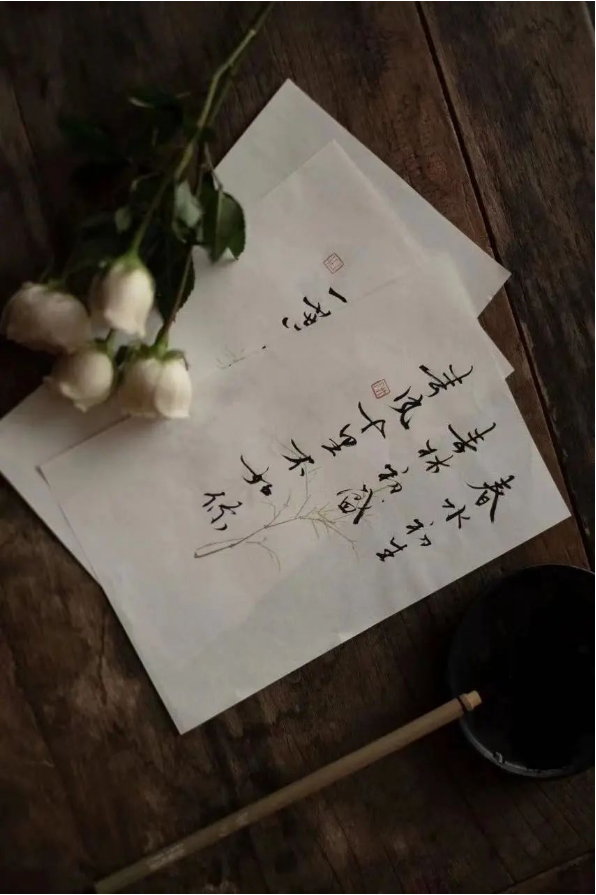 春水初生
春林初盛
春风十里不如你
一